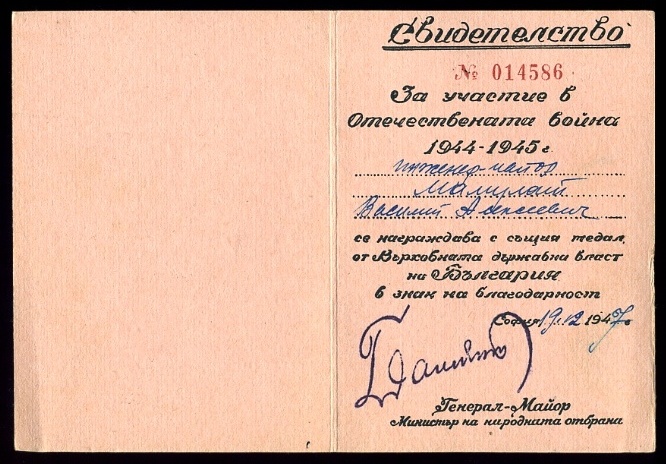 Свидетелство
№ 014586
За участие в
Отечествената война
1944-1945 г.
инженер-майор
Василий Алексеевич
се награждава с същия медал
от Върховната държавна власт
на България
в знак на благодарност
София 19.12 1947
Генерал-Майор
Министър на народната отбрана